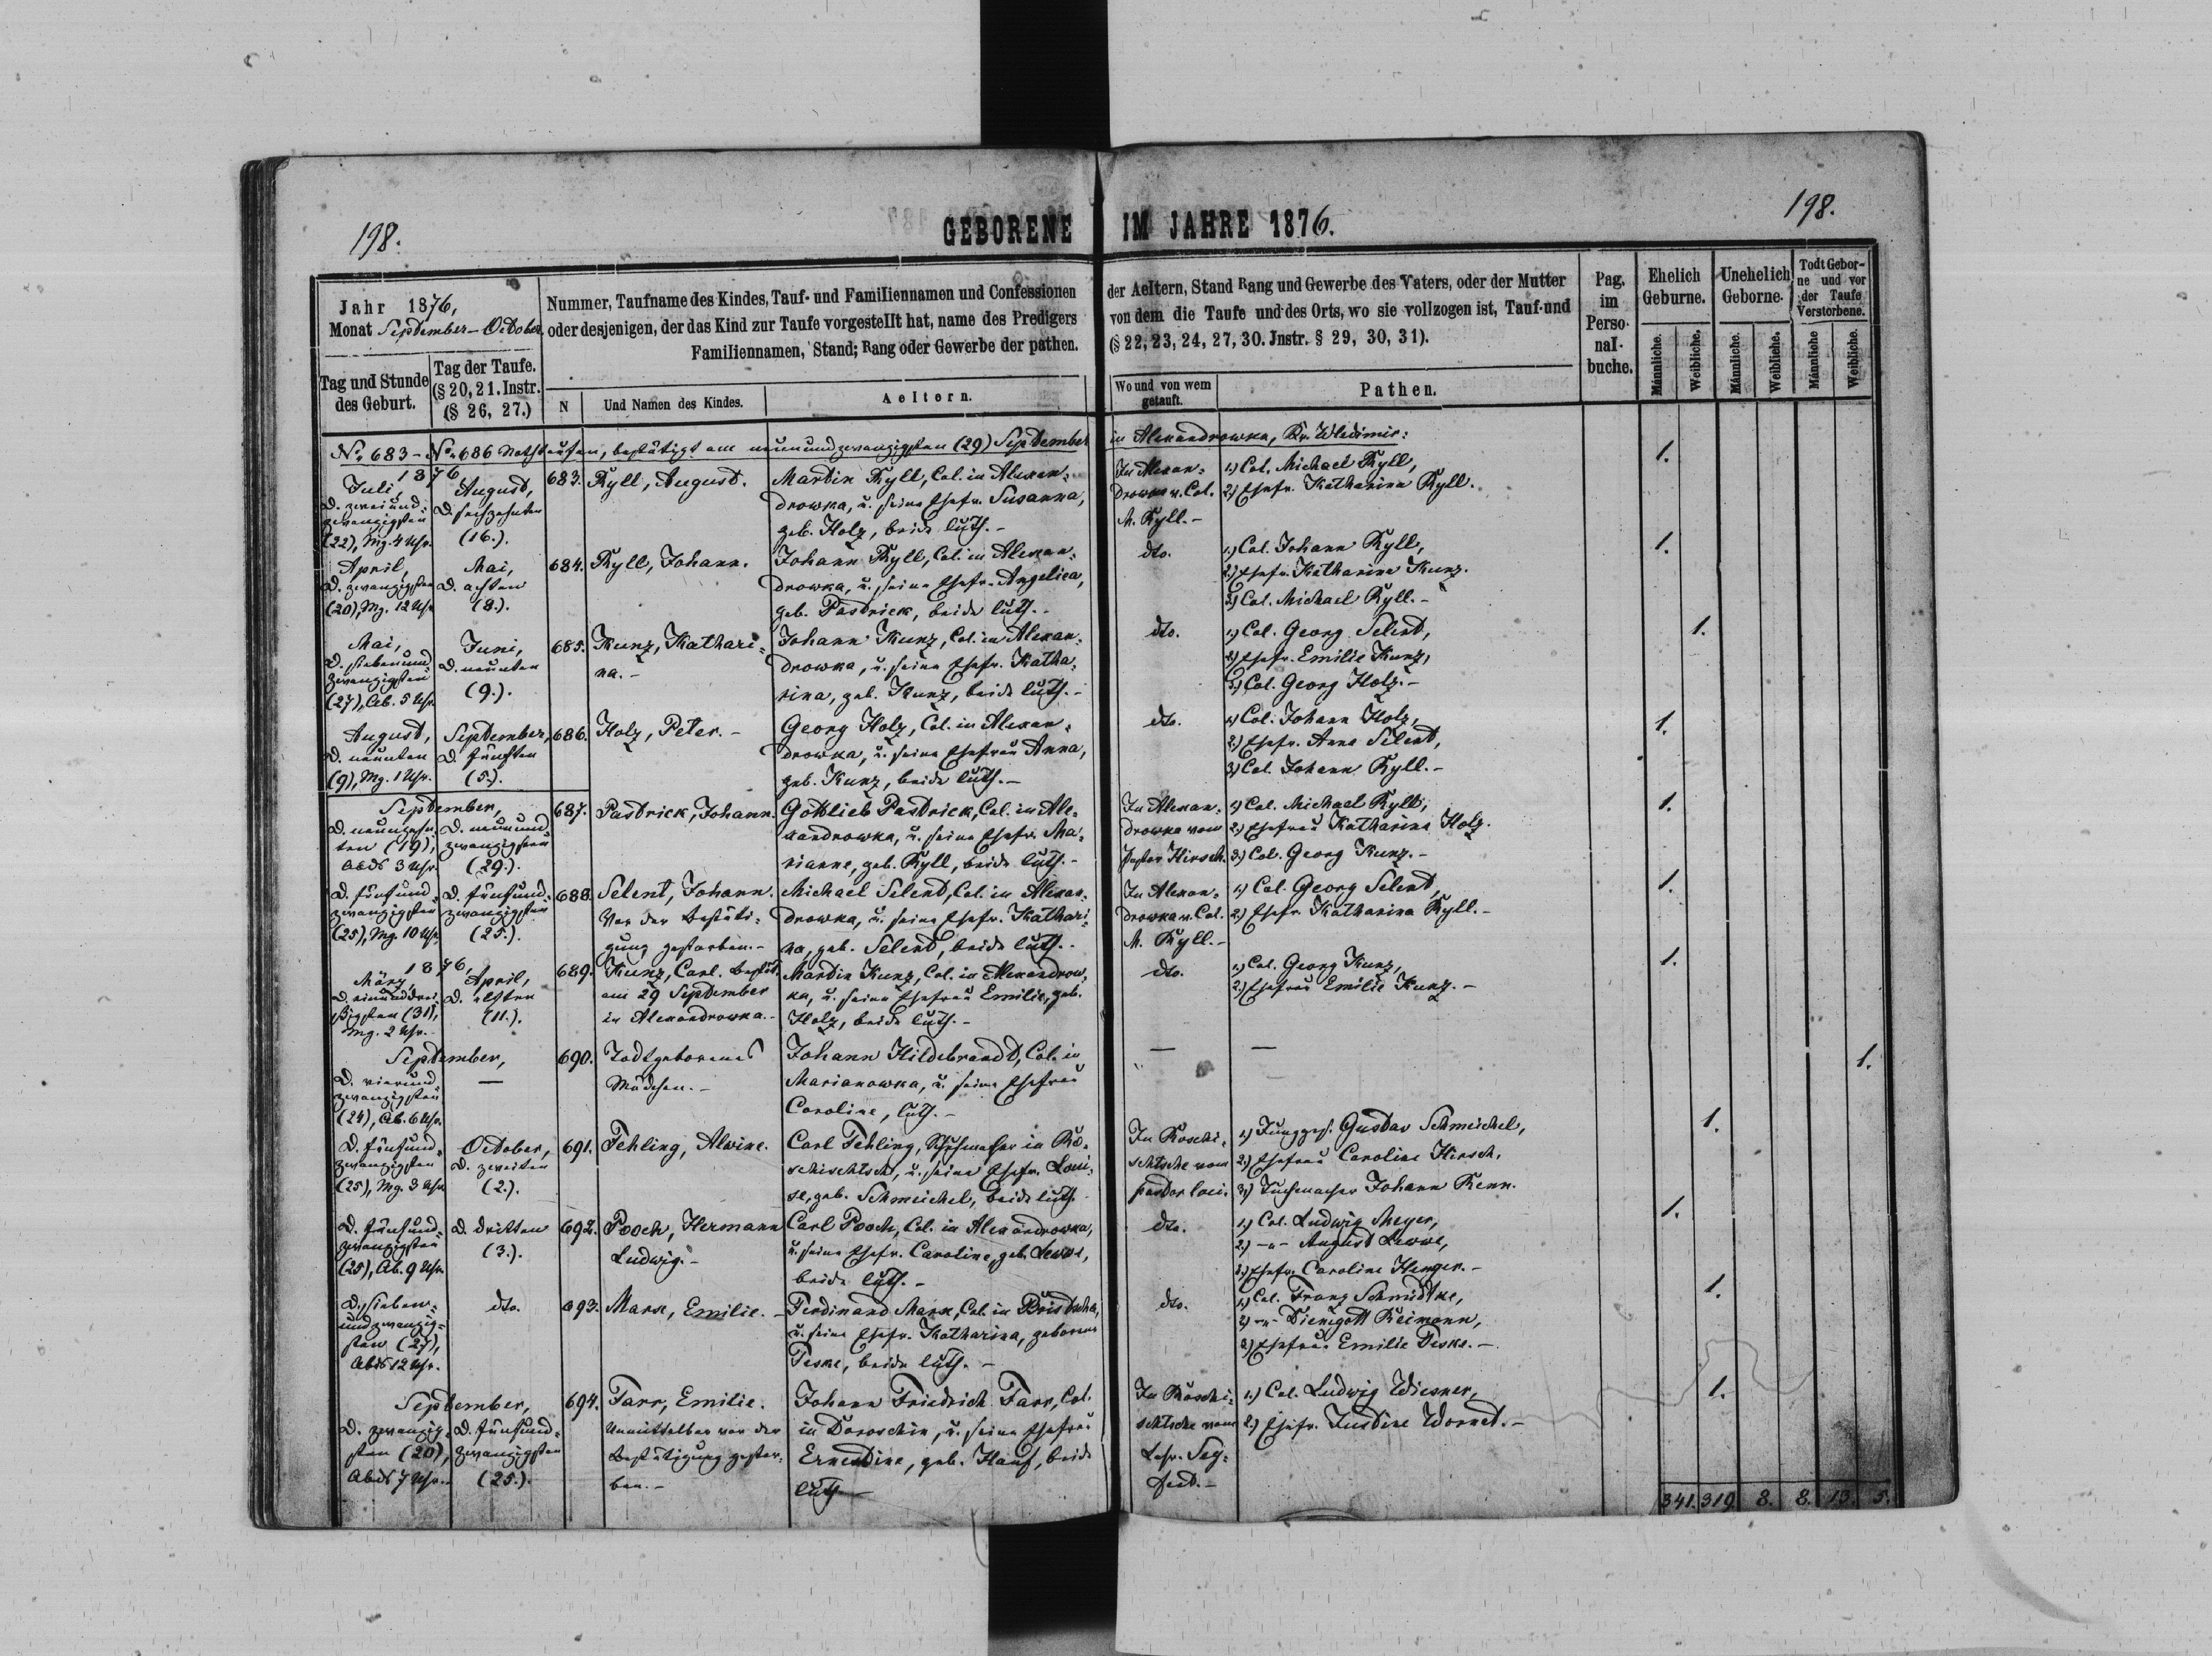 198.
GEBORENE IM JAHRE 1876.
198.
Jahr 1876,
Monat September - October
Tag und Stunde des Geburt.
Tag der Taufe.
(§ 20, 21. Instr.
(§ 26, 27.)
Nummer, Taufname des Kindes, Tauf- und Familiennamen und Confessionen
oder desjenigen, der das Kind zur Taufe vorgestellt hat, name des Predigers
Familiennamen, Stand; Rang oder Gewerbe der pathen.
N
Und Namen des Kindes.
Aeltern.
der Aeltern, Stand Rang und Gewerbe des Vaters, oder der Mutter
von dem die Taufe und des Orts, wo sie vollzogen ist, Tauf-und
(§ 22, 23, 24, 27, 30. Jnstr. § 29, 30, 31).
Wo und von wem
getauft.
Pathen.
Pag.
im
Perso-
nal-
buche.
Ehelich
Geburne.
Unehelich
Geborne.
Todt Gebor-
ne und vor
der Taufe
Verstorbene.
Männliche.
Weibliche.
Männliche.
Weibliche.
Männliche
Weibliche.
No 683 - No 686 Nothtaufen, bestätigt am neunundzwanzigsten (29) September in Alexandrowka, Kr. Wladimir:
1876
Juli,
D. zweiund-
zwanzigsten
(22), Mg. 4 Uhr.
August,
D. sechzehnten
(16.).
683.
Ryll, August.
Martin Ryll, Col. in Alexan-
drowka, u. seine Ehefr. Susanna,
geb. Holz, beide luth. -
In Alexan-
drowka v. Col.
M. Ryll. -
1.) Col. Michael Ryll,
2.) Ehefr. Katharina Ryll.
1.
April,
D. zwanzigsten
(20), Mg. 12 Uhr
Mai,
D. achten
(8.).
684.
Ryll, Johann.
Johann Ryll, Col. in Alexan-
drowka, u. seine Ehefr. Angelica,
geb. Pastrick, beide luth. -
dto.
1.) Col. Johann Ryll,
2.) Ehefr. Katharina Kunz.
3.) Col. Michael Ryll. -
1.
Mai,
D. siebenund-
zwanzigsten
(27), Ab. 5 Uhr.
Juni,
D. neunten
(9.).
685.
Kunz, Kathari-
na. -
Johann Kunz, Col. in Alexan-
drowka, u. seine Ehefr. Katha-
rina, geb. Kunz, beide luth. -
dto.
1.) Col. Georg Selent,
2.) Ehefr. Emilie Kunz,
3.) Col. Georg Holz. -
1.
August,
D. neunten
(9), Mg. 1 Uhr.
September,
D. fünften
(5.).
686.
Holz, Peter. -
Georg Holz, Col. in Alexan-
drowka, u. seine Ehefrau Anna,
geb. Kunz, beide luth. -
dto.
1.) Col. Johann Holz,
2.) Ehefr. Anna Selent,
3.) Col. Johann Ryll. -
1.
September,
D. neunzehn-
ten (19),
Abds 3 Uhr.
D. neunund
zwanzigsten
(29.).
687.
Pastrick, Johann.
Gottlieb Pastrick, Col. in Ale-
xandrowka, u. seine Ehefr. Ma-
rianne, geb. Ryll, beide luth. -
In Alexan-
drowka vom
Pastor Hirsch.
1.) Col. Michael Ryll,
2.) Ehefrau Katharina Holz.
3.) Col. Georg Kunz. -
1.
D. fünfund-
zwanzigsten
(25), Mg. 10 Uhr
D. fünfund-
zwanzigsten
(25.).
688.
Selent, Johann.
Vor der Bestäti-
gung gestorben. -
Michael Selent, Col. in Alexan-
drowka, u. seine Ehefr. Kathari-
na, geb. Selent, beide luth. -
In Alexan-
drowka v. Col.
M. Ryll. -
1.) Col. Georg Selent,
2.) Ehefr. Katharina Ryll. -
1.
1876,
März,
D. einunddrei-
ßigsten (31),
Mg. 2 Uhr.
April,
D. elften
(11.).
689.
Kunz, Carl. Bestät.
am 29 September
in Alexandrowka. -
Martin Kunz, Col. in Alexandrow-
ka, u. seine Ehefrau Emilie, geb.
Holz, beide luth. -
dto.
1.) Col. Georg Kunz,
2.) Ehefrau Emilie Kunz. -
1.
September,
D. vierund-
zwanzigsten
(24), Ab. 6 Uhr.
—
690.
Todtgeborenes
Mädchen. -
Johann Hildebrandt, Col. in
Marianowka, u. seine Ehefrau
Caroline, luth. -
—
—
1.
D. fünfund-
zwanzigsten
(25), Mg. 3 Uhr
October,
D. zweiten
(2.).
691.
Fehling, Alwine.
Carl Fehling, Schuhmacher in Ro-
schischtsche, u. seine Ehefr. Loui-
se, geb. Schmeichel, beide luth.
In Roschi-
schtsche vom
pastor loci.
1.) Junggs. Gustav Schmeichel,
2.) Ehefrau Caroline Hirsch,
3.) Tuchmacher Johann Renn.
1.
D. fünfund-
zwanzigsten
(25), Ab. 9 Uhr.
D. dritten
(3.).
692.
Pooch, Hermann
Ludwig. -
Carl Pooch, Col. in Alexandrowka,
u. seine Ehefr. Caroline, geb. Lewe,
beide luth. -
dto.
1.) Col. Ludwig Meyer,
2.) -"- August Lewe,
3.) Ehefr. Caroline Henger. -
1.
D. sieben-
undzwanzig-
sten (27),
Abds 12 Uhr.
dto.
693.
Marx, Emilie. -
Ferdinand Marx, Col. in
u. seine Ehefr. Katharina, geborene
Teske, beide luth. -
dto.
1.) Col. Franz Schmidtke,
2.) -"- Reimann,
3.) Ehefrau Emilie Teske. -
1.
September,
D. zwanzig-
sten (20),
Abds 7 Uhr. -
D. fünfund-
zwanzigsten
(25.).
694.
Farr, Emilie.
Unmittelbar vor der
Bestätigung gestor-
ben. -
Johann Friedrich Farr, Col.
in Doroschin, u. seine Ehefrau
Ernestine, geb. Hanf, beide
luth. -
In Roschi-
schtsche vom
1.) Col. Ludwig Wiesner,
2.) Ehefr. Justine Wornet. -
1.
341. 319. 8. 8. 13. 5.